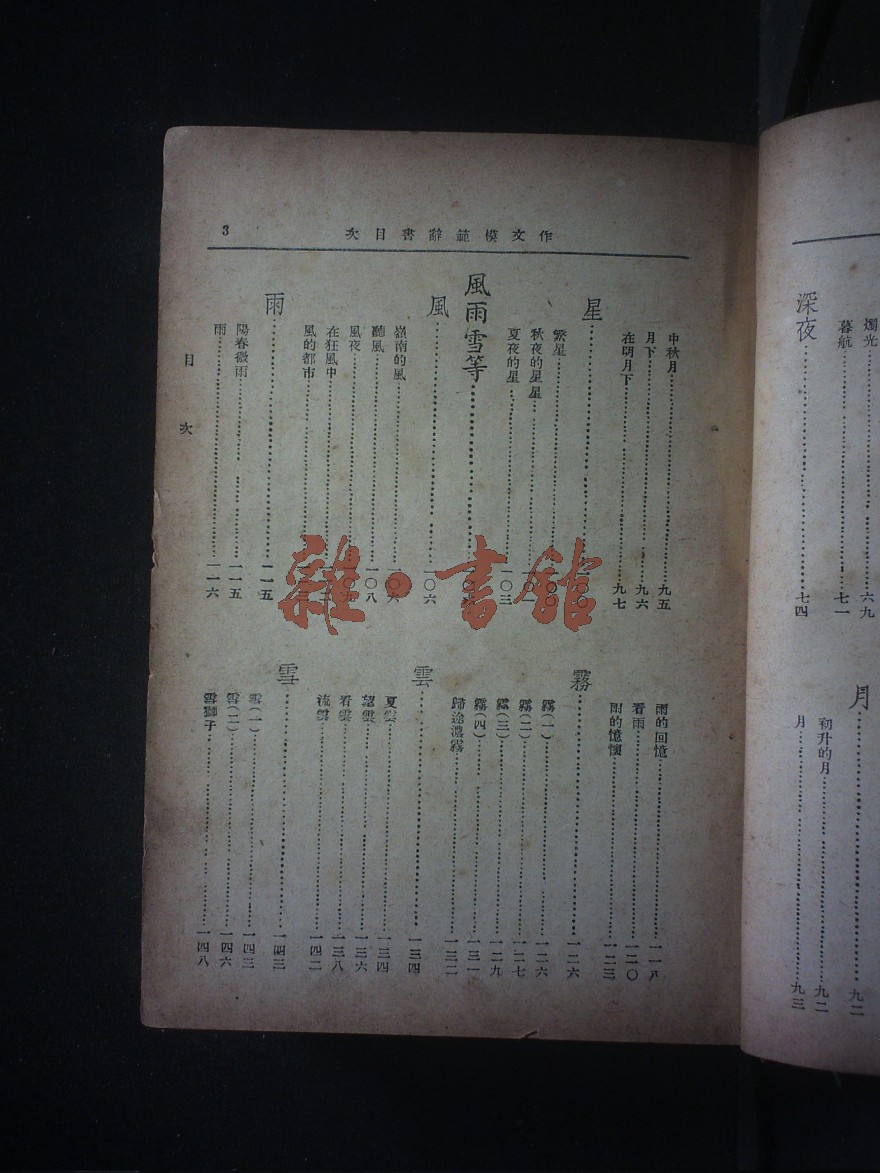 燭光……六九
暮航……七一
深夜……七四
月……九二
初升的月……九二
月……九三
3
作文模範辭書目次
中秋月……九五
月下……九六
在明月下……九七
星
繁星
秋夜的星星
夏夜的星……一〇三
風雨雪等
風……一〇六
嶺南的風……一〇六
聽風……一〇八
風夜
在狂風中
風的都市
雨……一一五
陽春微雨……一一五
雨……一一六
雨的回憶……一一八
看雨……一二〇
雨的憶懷……一二三
霧……一二六
霧(一)……一二六
霧(二)……一二七
霧(三)……一二九
霧(四)……一三一
歸途濃霧……一三二
雲……一三四
夏雲……一三四
望雲……一三六
看雲……一三八
流雲……一四二
雪……一四三
雪(一)……一四三
雪(二)……一四六
雪獅子……一四八
目次
雜·書館